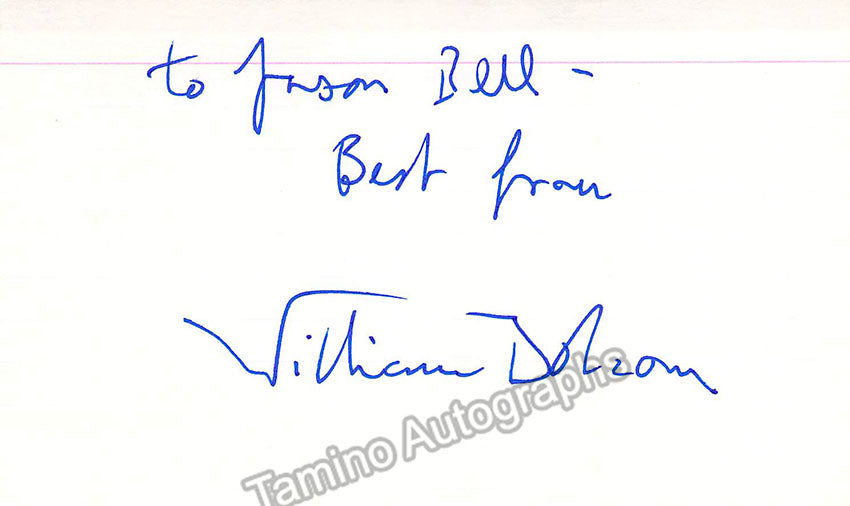 to Jason Bell -
Best from
William Bolcom
Tamino Autographs